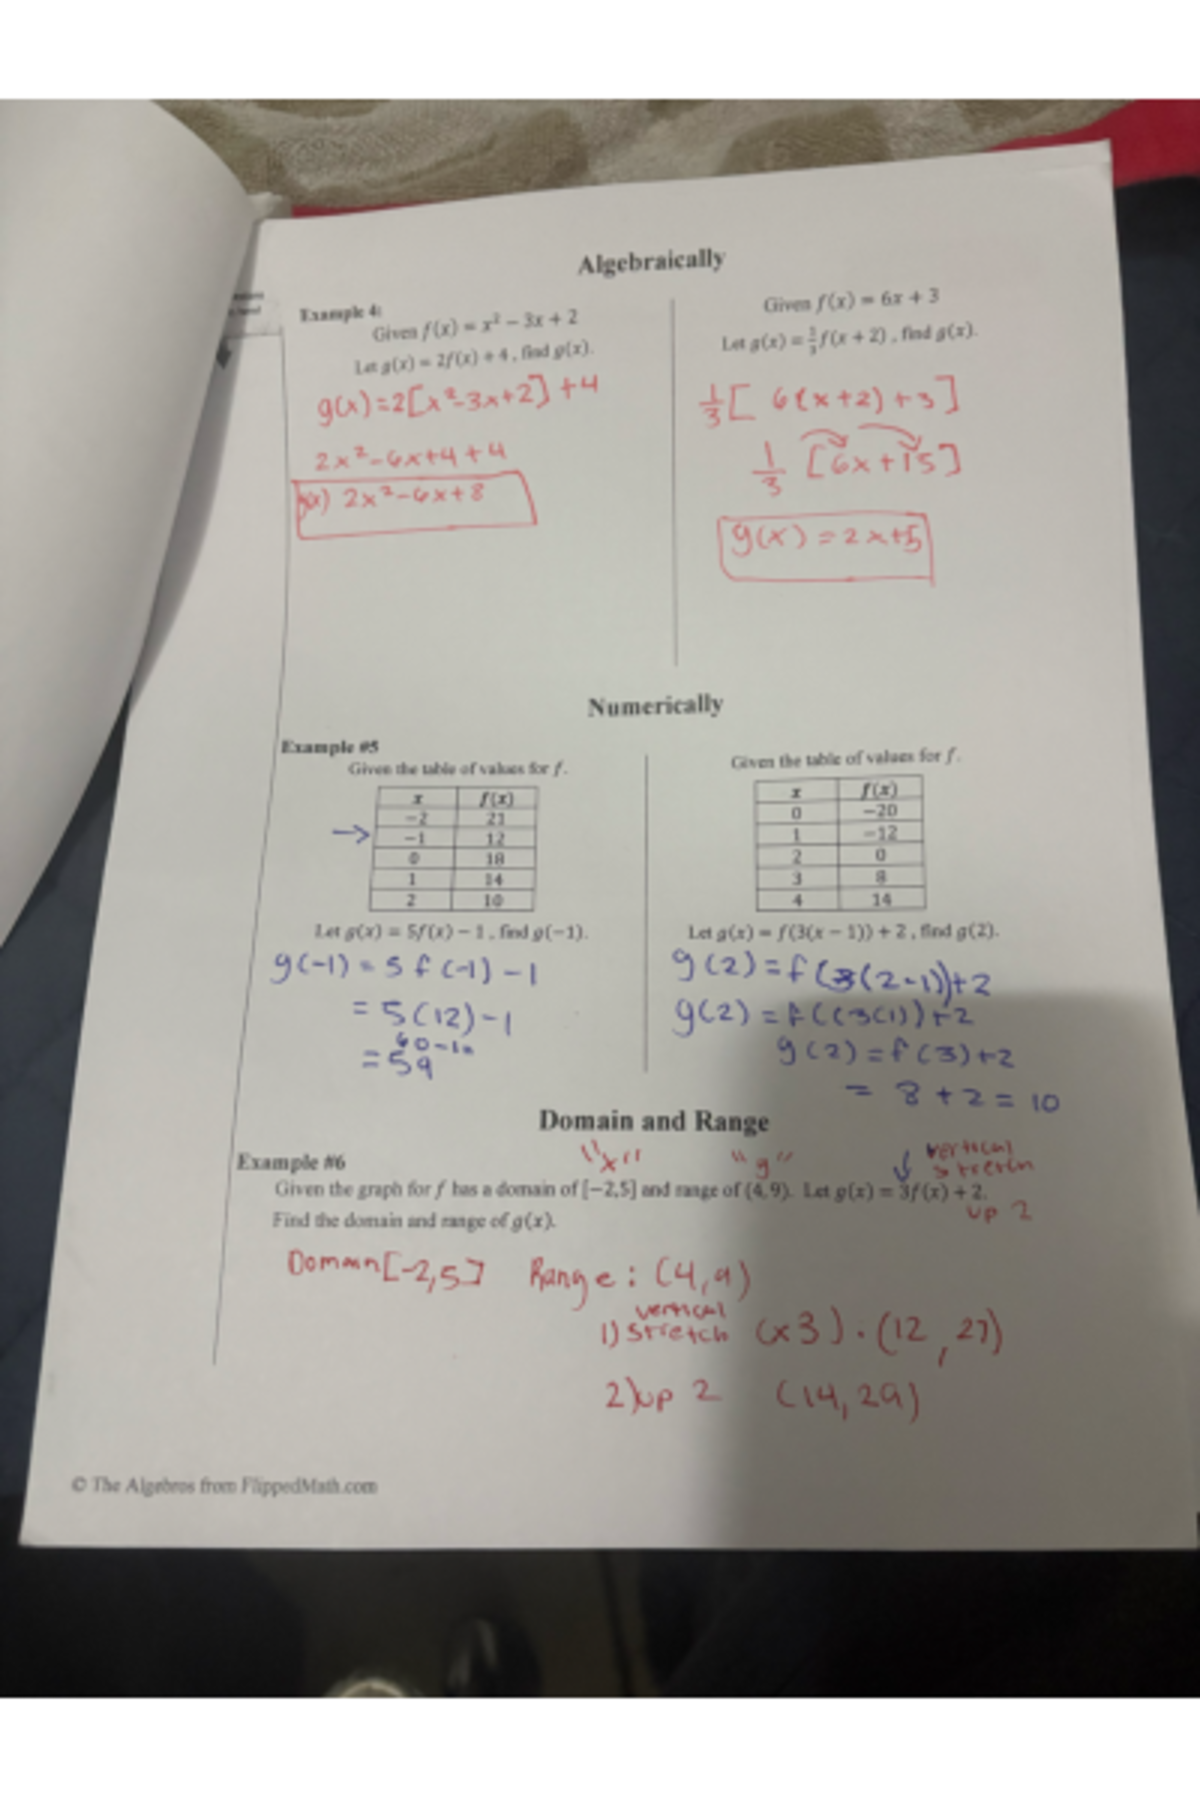 Algebraically
Example 4:
Given f(x) = x² − 3x + 2
Let g(x) = 2f(x) + 4, find g(x).
g(x)=2[x²-3x+2]+4
2x²-6x+4+4
g(x) 2x²-6x+8
Given f(x) = 6x + 3
Let g(x) = 1/3 f(x + 2), find g(x).
1/3 [ 6(x+2)+3]
1/3 [6x+15]
g(x) = 2x+5
Numerically
Example #5
Given the table of values for f.
x f(x)
−2 21
→ −1 12
0 18
1 14
2 10
Let g(x) = 5f(x) − 1, find g(−1).
g(-1) = 5 f(-1) - 1
= 5(12) - 1
60-1
= 59
Given the table of values for f.
x f(x)
0 −20
1 −12
2 0
3 8
4 14
Let g(x) = f(3(x − 1)) + 2, find g(2).
g(2) = f(3(2-1))+2
g(2) = f((3(1))+2
g(2) = f(3)+2
= 8 + 2 = 10
Domain and Range
Example #6
"x" "y" ↓ vertical
stretch
Given the graph for f has a domain of [−2,5] and range of (4,9). Let g(x) = 3f(x) + 2.
up 2
Find the domain and range of g(x).
Domain [-2,5] Range: (4,9)
vertical
1) stretch (x3) · (12, 27)
2) up 2 (14, 29)
© The Algebros from FlippedMath.com